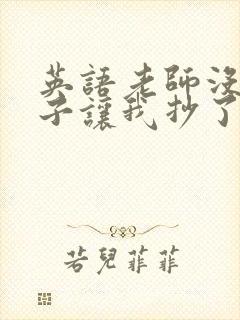 英語老師沒
子讓我抄了
若兒菲菲